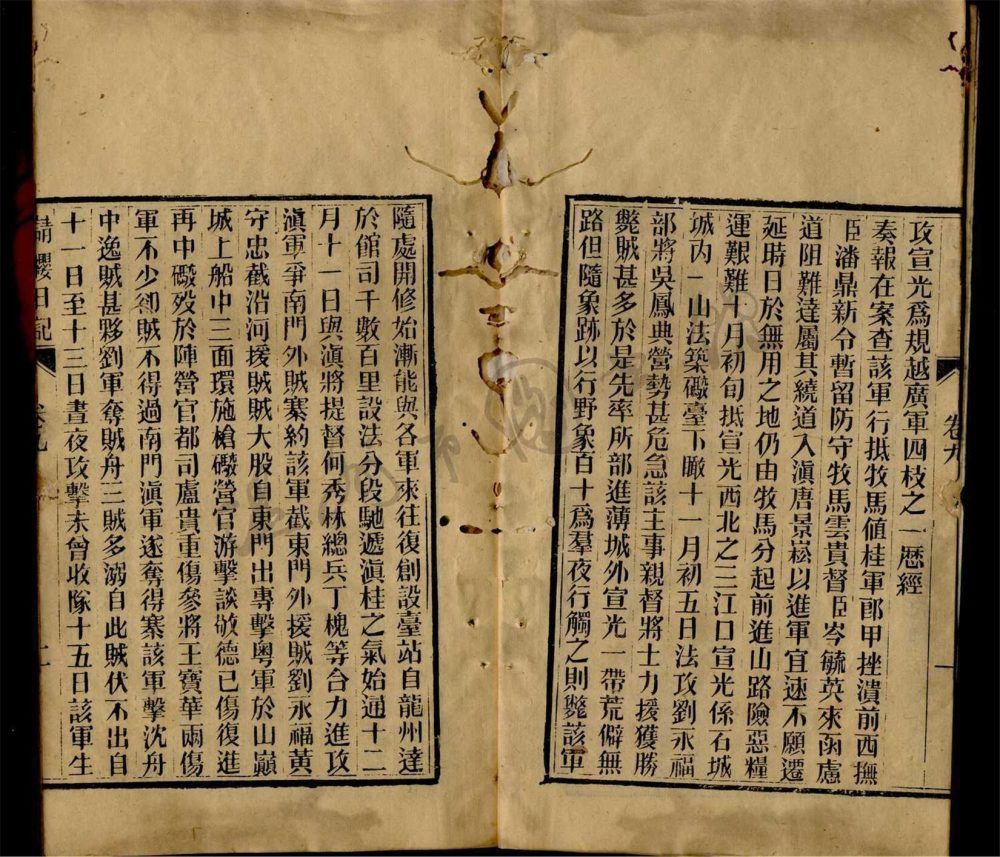 攻宣光爲規越廣軍四枝之一歷經
奏報在案查該軍行抵牧馬値桂軍郎甲挫潰前西撫
臣潘鼎新令暫留防守牧馬雲貴督臣岑毓英來函慮
道阻難達屬其繞道入滇唐景崧以進軍宜速不願遷
延時日於無用之地仍由牧馬分起前進山路險惡糧
運艱難十月初旬抵宣光西北之三江口宣光係石城
城內一山法築礮臺下瞰十一月初五日法攻劉永福
部將吳鳳典營勢甚危急該主事親督將士力援獲勝
斃賊甚多於是先率所部進薄城外宣光一帶荒僻無
路但隨象跡以行野象百十爲羣夜行觸之則斃該軍
卷九
一
隨處開修始漸能與各軍來往復創設臺站自龍州達
於館司千數百里設法分段馳遞滇桂之氣始通十二
月十一日與滇將提督何秀林總兵丁槐等合力進攻
滇軍爭南門外賊寨約該軍截東門外援賊劉永福黃
守忠截沿河援賊賊大股自東門出專擊粤軍於山巓
城上船中三面環施槍礮營官游擊談敬德已傷復進
再中礮歿於陣營官都司盧貴重傷參將王寶華兩傷
軍不少卻賊不得過南門滇軍遂奪得寨該軍擊沈舟
中逸賊甚夥劉軍奪賊舟二賊多溺自此賊伏不出自
十一日至十三日晝夜攻擊未曾收隊十五日該軍生
請纓日記
卷九
二